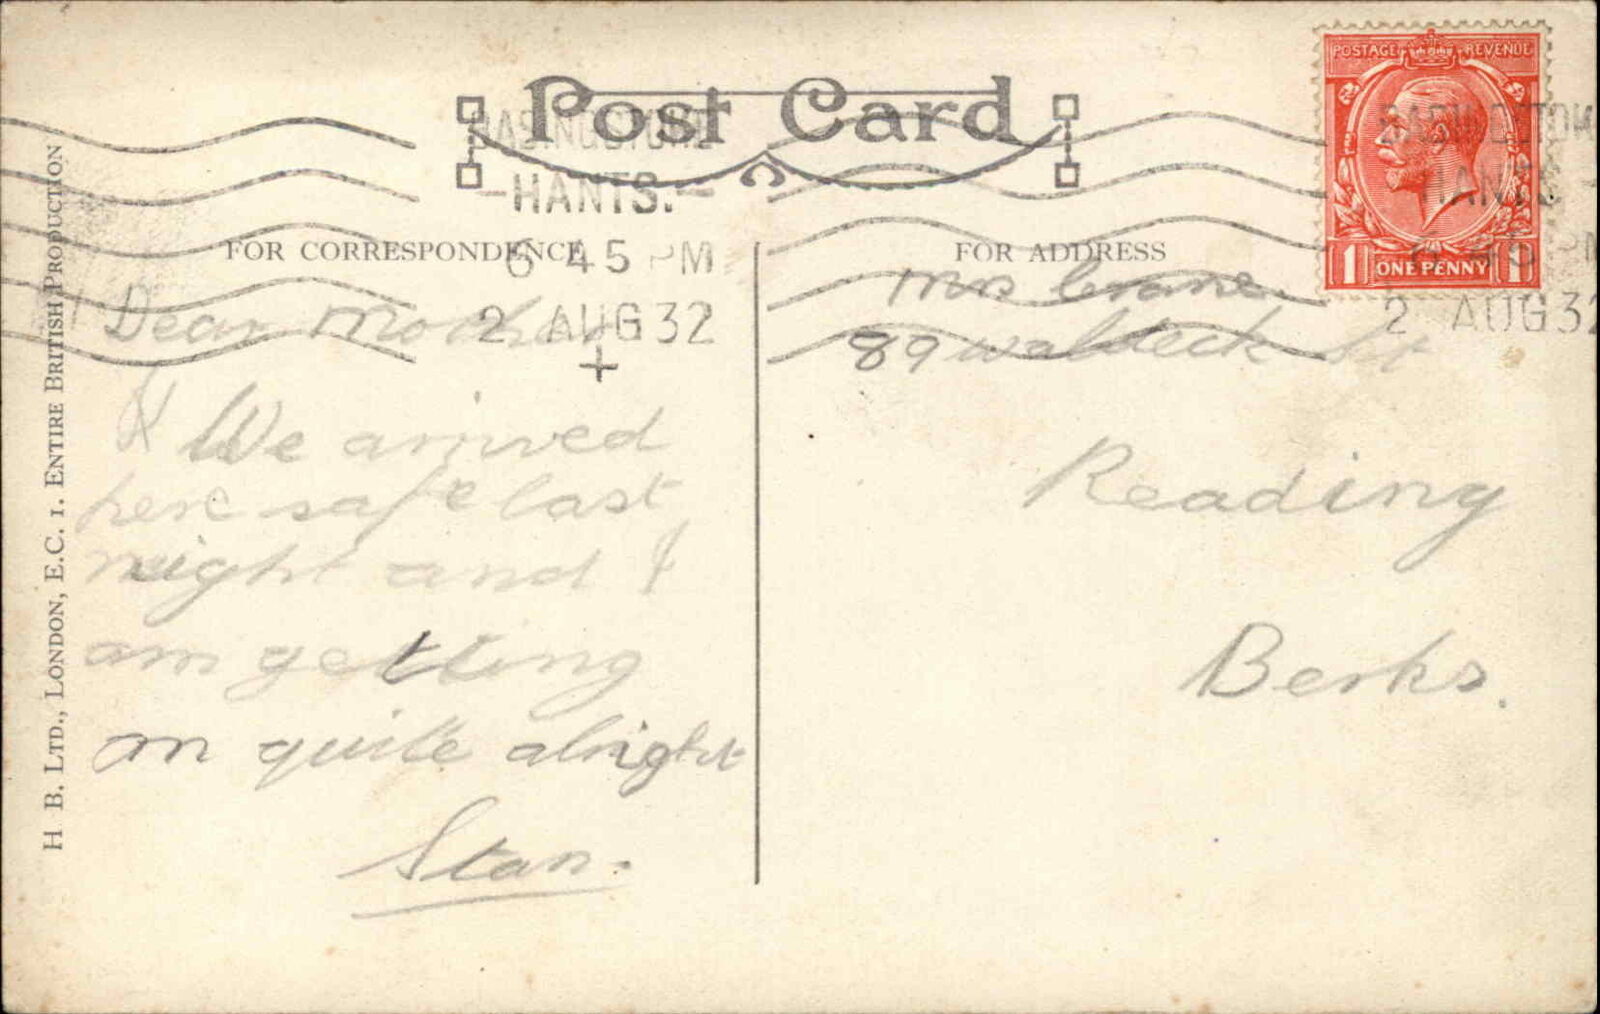 Post Card
BASINGSTOKE
-HANTS.-
6 45 PM
2 AUG 32
FOR CORRESPONDENCE
Dear Mother
We arrived
here safe last
night and I
am getting
on quite alright
Stan.
H. B. LTD., LONDON, E.C. 1. ENTIRE BRITISH PRODUCTION
FOR ADDRESS
Mrs Crane.
89 Waldeck St
Reading
Berks.
POSTAGE REVENUE
1 ONE PENNY 1D
BASINGSTOKE
HANTS -
6 45 PM
2 AUG 32